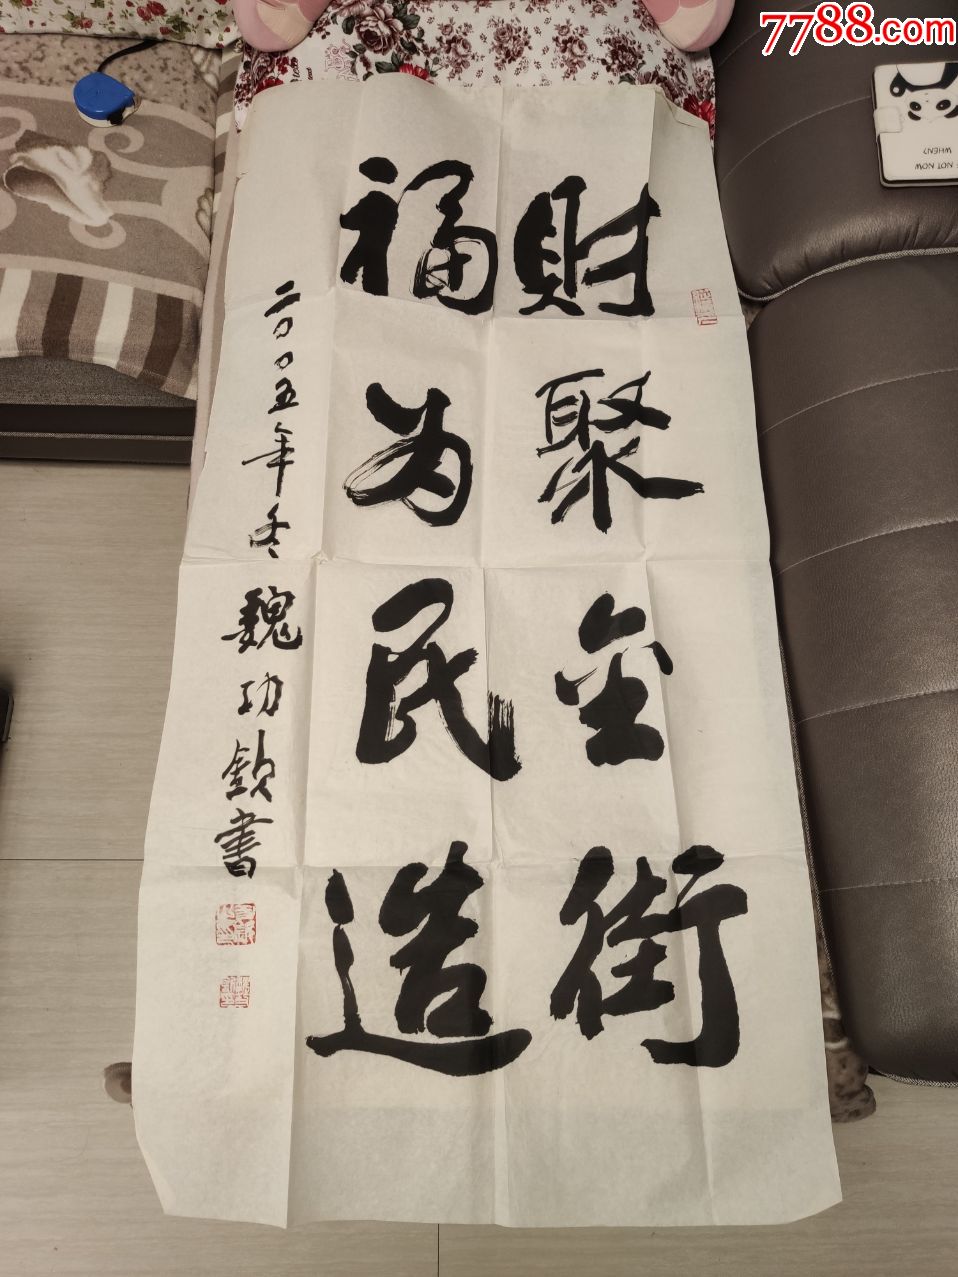 7788.com
財聚金街
福为民造
二〇〇五年冬魏功欽書
NOT NOW
WHEN?